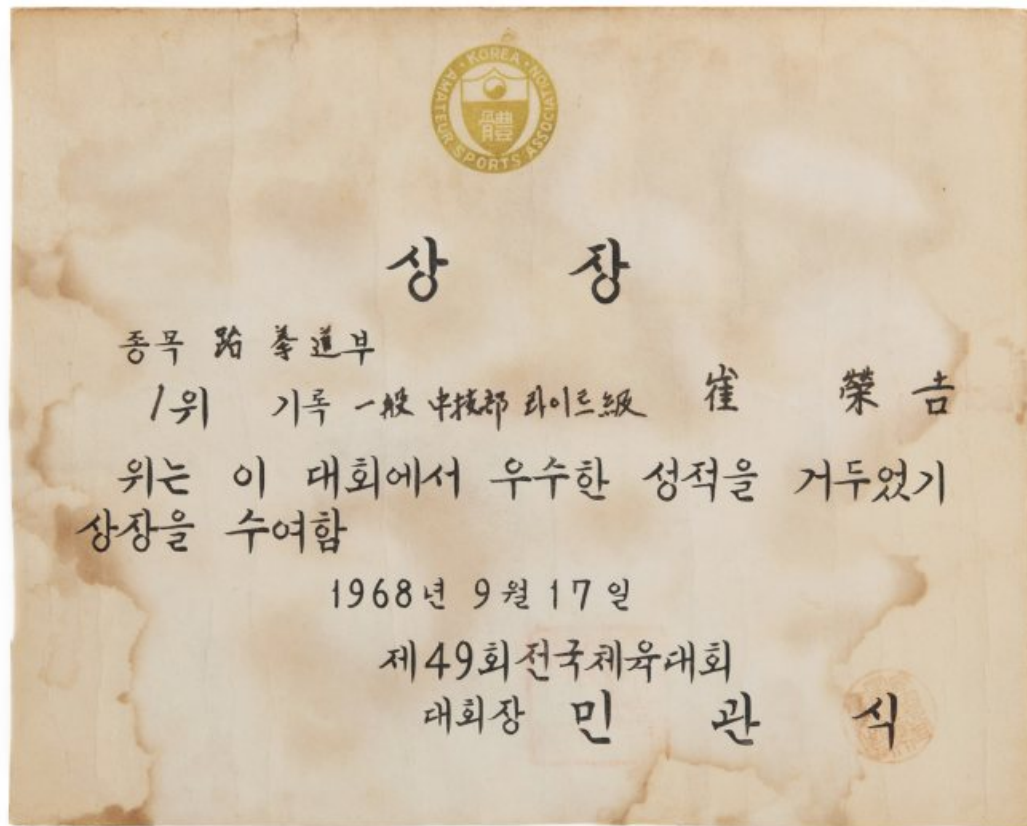 KOREA AMATEUR SPORTS ASSOCIATION
體
상 장
종목 跆拳道부
1위 기록 一般 中技部 라이트級 崔 榮 吉
위는 이 대회에서 우수한 성적을 거두었기
상장을 수여함
1968년 9월 17일
제49회전국체육대회
대회장 민 관 식